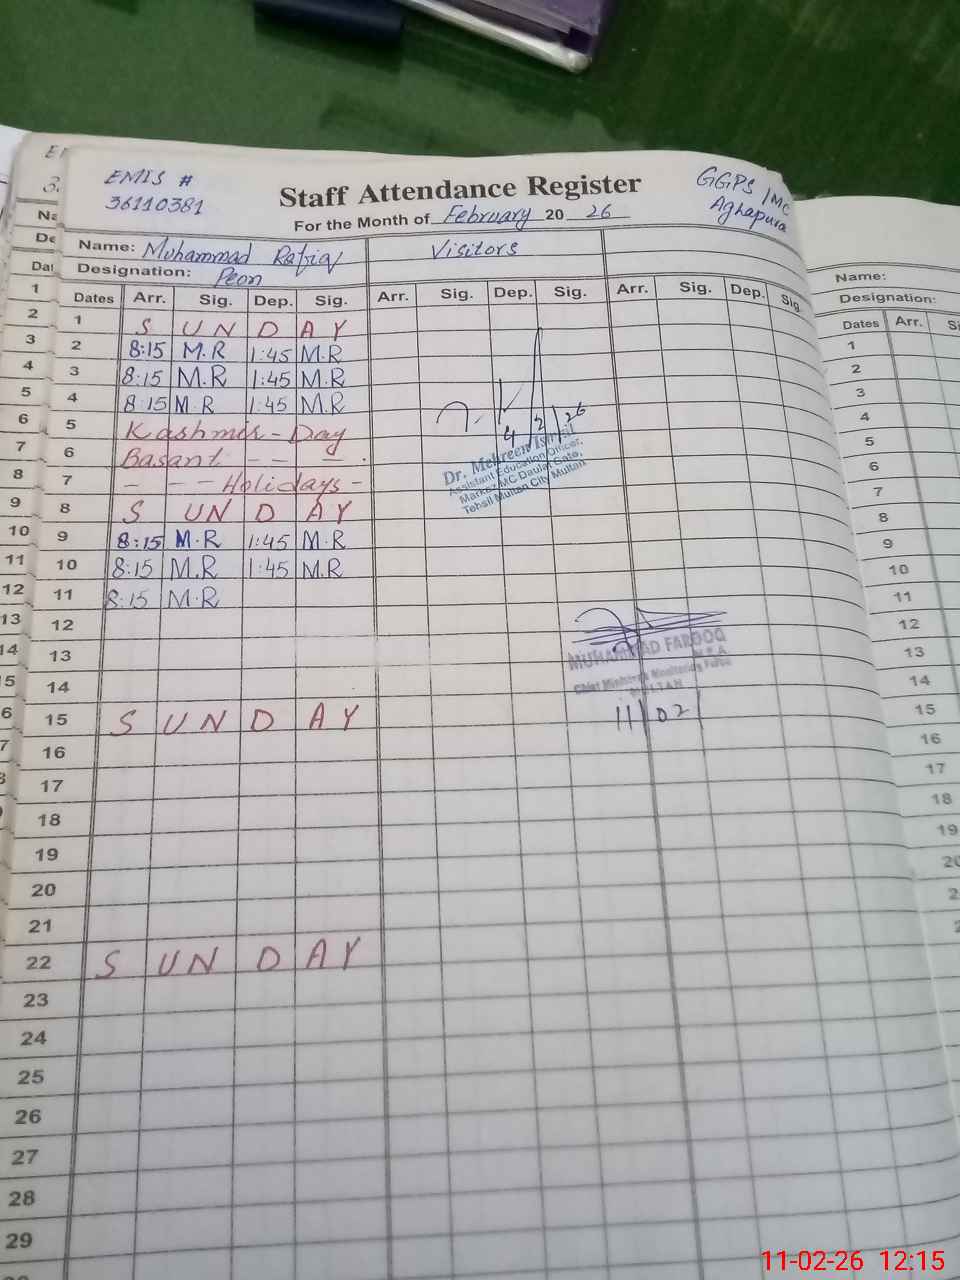 EMIS #
36110381
Staff Attendance Register
GGPS /MC
Aghapura
For the Month of February 20 26
Name: Muhammad Rafiq
Visitors
Designation: Peon
Dates Arr. Sig. Dep. Sig. Arr. Sig. Dep. Sig. Arr. Sig. Dep. Sig.
1 S U N D A Y
2 8:15 M.R 1:45 M.R
3 8:15 M.R 1:45 M.R
4 8:15 M.R 1:45 M.R
5 Kashmir - Day
6 Basant - - - .
7 - - - Holidays -
8 S U N D A Y
9 8:15 M.R 1:45 M.R
10 8:15 M.R 1:45 M.R
11 8:15 M.R
12
13
14
15 S U N D A Y
16
17
18
19
20
21
22 S U N D A Y
23
24
25
26
27
28
29
4/2/26
Dr. Mehreen Ismail
Assistant Education Officer,
Markaz MC Daulat Gate,
Tehsil Multan City Multan
MUHAMMAD FAROOQ
M.E.A.
Chief Minister's Monitoring Force
MULTAN
11/02/
Name:
Designation:
Dates Arr.
1
2
3
4
5
6
7
8
9
10
11
12
13
14
15
16
17
18
19
1
2
3
4
5
6
7
8
9
10
11
12
13
14
11-02-26 12:15